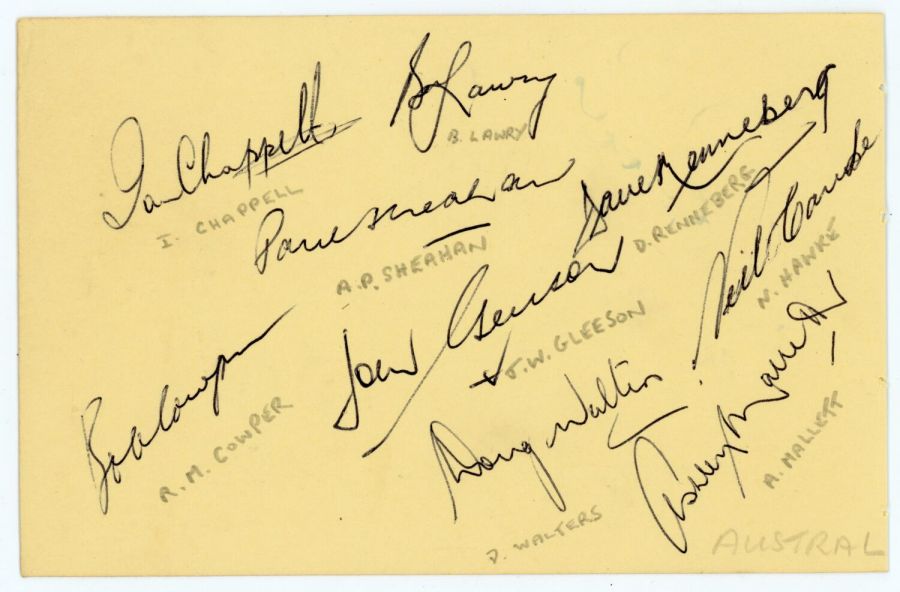 Ian Chappell
I. CHAPPELL
B Lawry
B. LAWRY
Paul Sheahan
A.P. SHEAHAN
Dave Renneberg
D. RENNEBERG
Neil Hawke
N. HAWKE
Bob Cowper
R. M. COWPER
John Gleeson
J.W. GLEESON
Doug Walters
D. WALTERS
Ashley Mallett
A. MALLETT
AUSTRAL